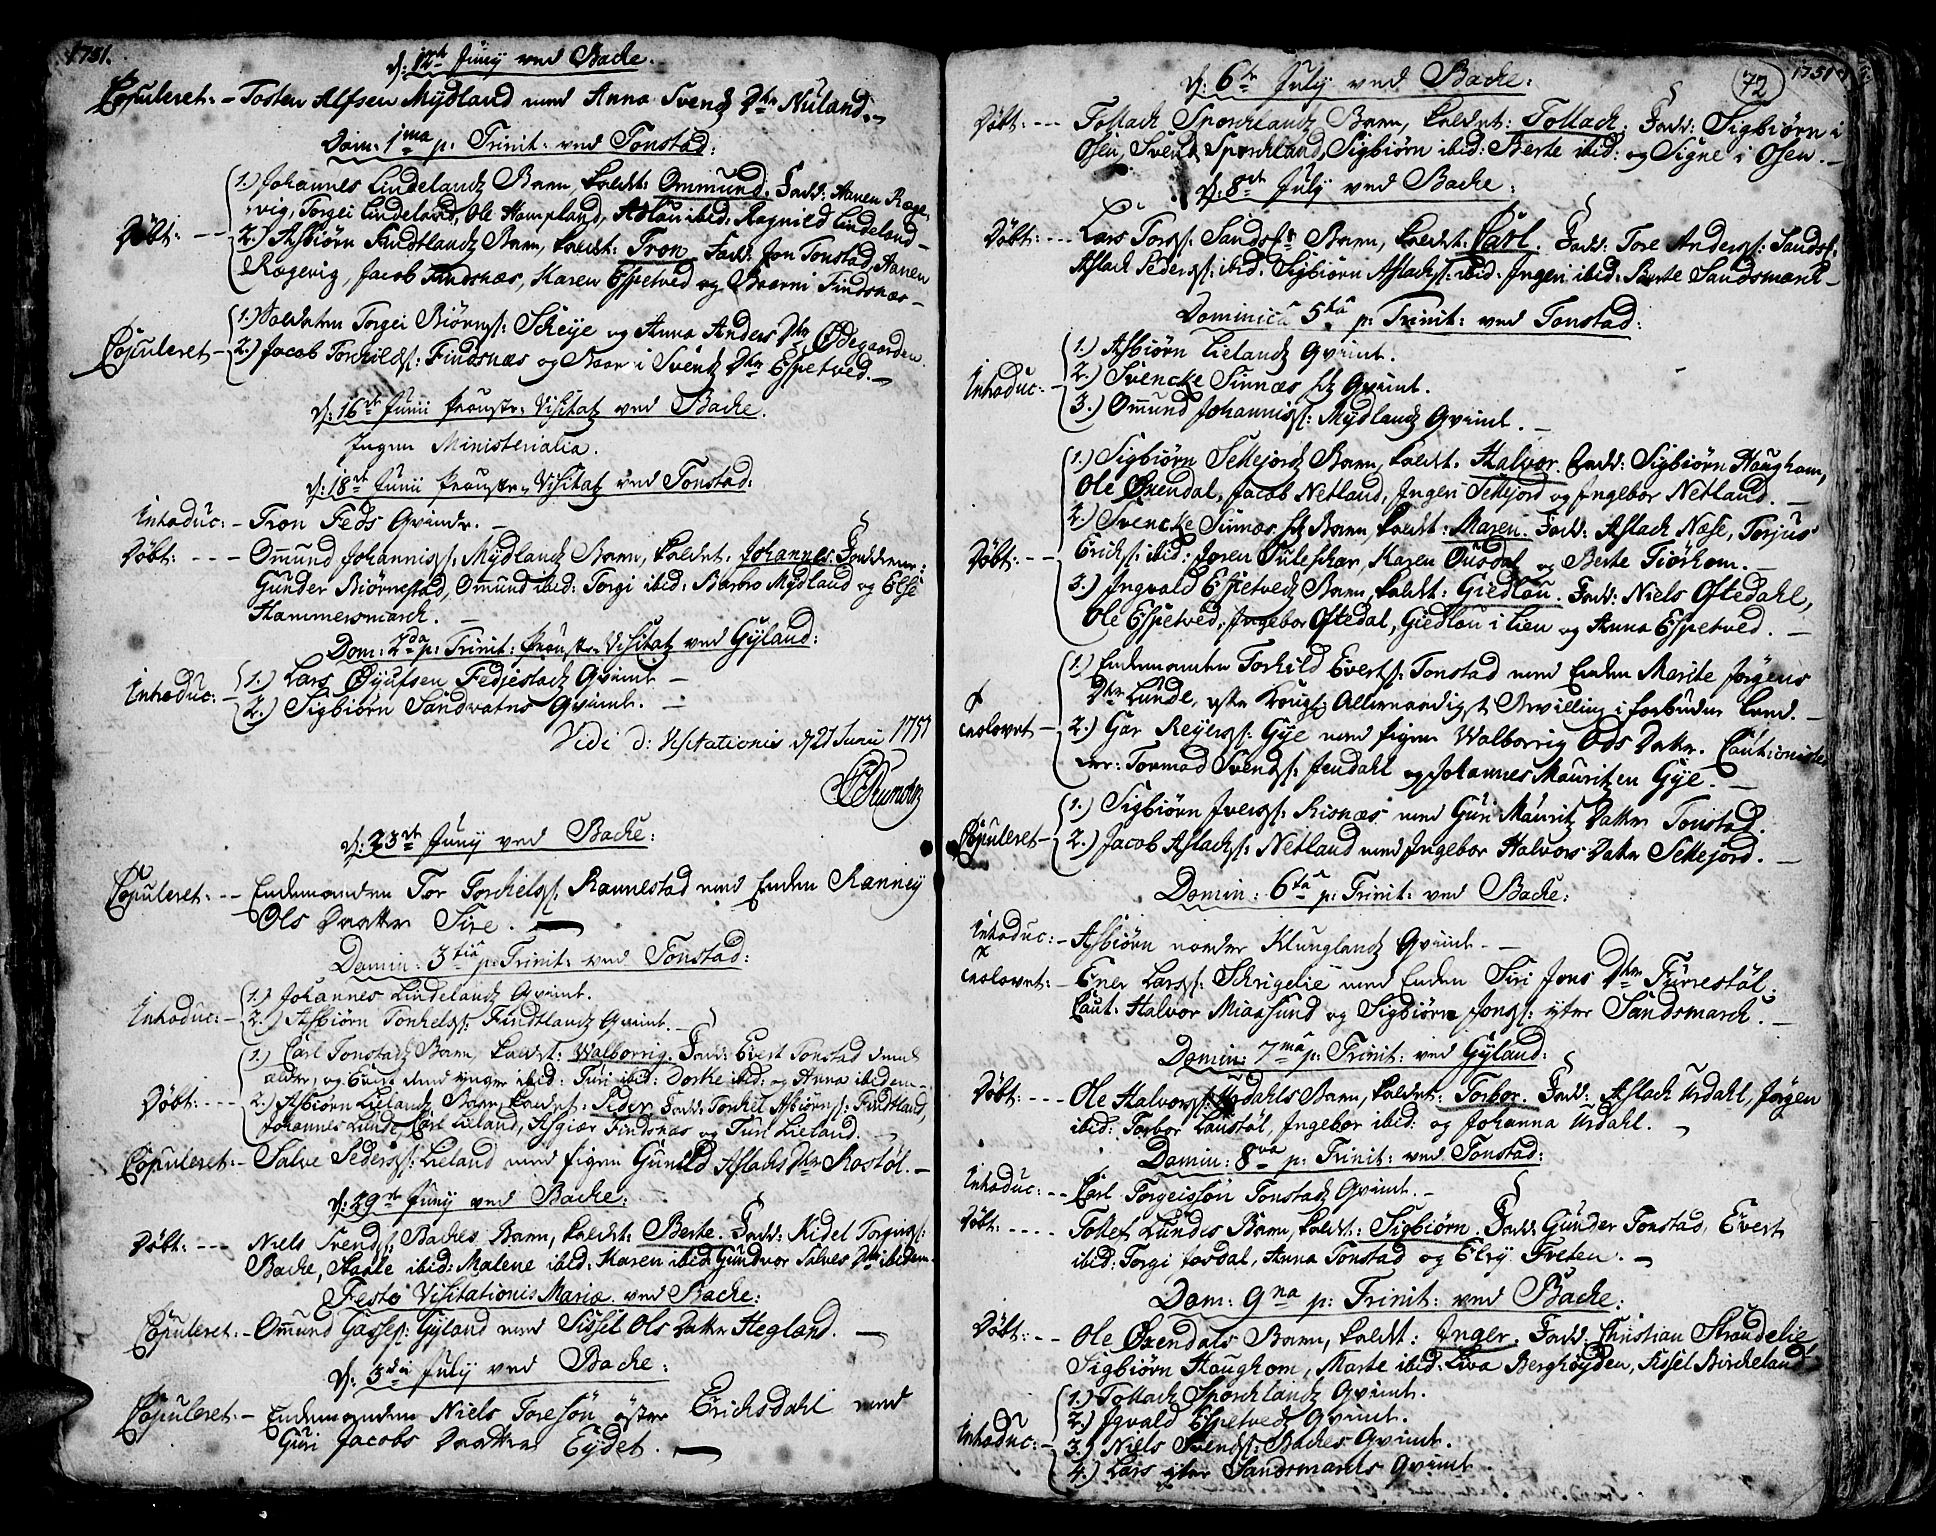 1751.
d: 12te Junij ved Backe.
Copuleret: - Tosten Alfsen Mydland med Anna Svends Dtr Nuland.
Dom: 1ma p: Trinit: ved Tonstad:
1.) Johannes Lindelands Barn, kaldet: Ommund. Fadd: Aanen Røge-
vig, Torgei Lindeland, Ole Hompland, Aslau ibid: Ragnild Lindeland -
Døbt: - - 2.) Asbiørn Findtlands Barn, kaldet: Tron. Fadd: Jon Tonstad, Aanen
Røgevig, Jacob Findsnæs, Karen Espetved og Baarni Findsnæs -
1.) Soldaten Torgei Biørns: Scheije og Anna Anders Dtr Ødegaarden
Copuleret - 2.) Jacob Torkilds: Findsnæs og Baarni Svends Dtr Espetved. -
d: 16de Junii Proustr: Visitatz ved Backe.
Ingen Ministerialia.
d: 18de Junii Proustr: Visitatz ved Tonstad:
Introduc: - Tron Feds Qvinde. -
Døbt: - - - Omund Johanniss: Mydlands Barn, kaldet. Johannes. Fadderne:
Gunder Biørnestad, Omund ibid: Torgi ibid: Barbro Mydland og Else
Hammersmarck. -
Dom: 2da p: Trinit: Proustr: Visitatz ved Gyland:
Introduc: - 1.) Lars Øyufsen Fedjestads Qvinde -
2.) Sigbiørn Sandvatns Qvinde. -
Vidi d: Visitationis d 21 Junii 1751
d: 23de Junij ved Backe:
Copuleret: - - Enkemanden Tor Torchels: Rannestad med Enken Ranney
Ols Daatter Sire. -
Domin: 3tia p: Trinit: ved Tonstad:
1.) Johannes Lindelands Qvinde.
Introduc: - 2.) Asbiørn Tonkels: Findtlands Qvinde. -
1.) Carl Tonstads Barn, kaldet: Walborrig. Fadd: Evert Tonstad dend
ældre, og Evert dend yngre ibid: Turi ibid: Dorthe ibid: og Anna ibidem -
Døbt: - - - 2.) Asbiørn Lielands Barn, kaldet: Peder. Fadd: Tonkel Asbiørns: Findtland,
Johannes Lunde, Carl Lieland, Asgiær Findsnæs og Turi Lieland. -
Copuleret: - Salve Peders: Lieland med Pigen Gunild Aslachs Dtr Rostøl. -
d: 29de Junij ved Backe:
Døbt: - - - Niels Svends: Backes Barn, kaldet: Berte. Fadd: Kidel Torgius:
Backe, Staale ibid: Malene ibid: Karen ibid: Gundvor Salves Dtr ibidem -
Festo Visitationis Mariæ ved Backe:
Copuleret: - Omund Gasses: Gyland med Sissel Ols Datter Hegland. -
d: 3die July ved Backe:
Copuleret: - Enkemanden Niels Toresøn øster Erichsdahl med
Guri Jacobs Daatter Eydet. -
72
1751
d: 6te July ved Backe:
Døbt: - - - Tollach Sporchlands Barn, kaldet: Tollach. Fadd: Sigbiørn i
Osen, Svend Sporchland, Sigbiørn ibid: Berte ibid: og Signe i Osen. -
d: 8de July ved Backe:
Døbt: - - - Lars Tores: Sandsm: Barn, kaldet: Carl. Fadd: Tore Anders: Sandsm:
Aslach Peders: ibid: Sigbiørn Aslachs: ibid: Ingeri ibid: Berte Sandsmark -
Dominica 5ta p: Trinit: ved Tonstad:
1.) Asbiørn Lielands Qvinde.
Introduc: - 2.) Svencke Sinnæs Qvinde.
3.) Omund Johanniss: Mydlands Qvinde. -
1.) Sigbiørn Sellejords Barn, kaldet. Halvor. Fadd: Sigbiørn Haughom,
Ole Øxendal, Jacob Netland, Ingeri Sellejord og Ingebor Netland. -
2.) Svencke Sinnæs Barn, kaldet: Maren. Fadd: Aslach Næse, Torjus
Døbt: - - Erichs: ibid: Joren Tulepskar, Karen Ousdal og Berte Fiørhom. -
3.) Ingvald Espetveds Barn, kaldet: Giedlou. Fadd: Niels Oftedahl,
Ole Espetved, Ingebor Oftedal, Giedlou i Lien og Anna Espetved. -
1.) Enkemanden Torkild Everts: Tonstad med Enken Marite Jørgens
Dtr Lunde, efter Kongl: Allernaadigst Bevilling i forbuden Leed. -
Trolovet - 2.) Gar Reijers: Gye med Pigen Walborrig Ods Datter. Cautionister
ver: Tormod Svends: Jendahl og Johannes Mauritzen Gye. -
1.) Sigbiørn Ivers: Risnæs med Guri Mauritz Datter Tonstad.
Copuleret - 2.) Jacob Aslachs: Netland med Ingebor Halvors Datter Sellejord. -
Domin: 6ta p: Trinit: ved Backe:
Introduc: - Asbiørn norder Klunglands Qvinde. -
Trolovet: - Ener Lars: Schregelie med Enken Siri Jons Dtr Furrestøl.
Caut: Halvor Miaasund og Sigbiørn Jons: yter Sandsmarck. -
Domin: 7ma p: Trinit: ved Gyland:
Døbt: - - - Ole Halvors: Urdahls Barn, kaldet: Torbor. Fadd: Aslach Urdahl, Jørgen
ibid: Torbor Laustøl, Ingebor ibid: og Johanna Urdahl. -
Domin: 8va p: Trinit: ved Tonstad:
Introduc: - - Carl Torgeissøn Tonstads Qvinde. -
Døbt: - - - - Tollef Lundes Barn, kaldet: Sigbiørn. Fadd: Gunder Tonstad, Evert
ibid: Torgi Josdal, Anna Tonstad og Elry Freten. -
Dom: 9na p: Trinit: ved Backe:
Døbt: - - Ole Øxendals Barn, kaldet: Inger. Fadd: Christian Strandelie
Sigbiørn Haughom, Marte ibid: Liva Berghøyden, Sissel Birkeland
1.) Tollach Sporchlands Qvinde.
2.) Igvald Espetveds Qvinde.
Introduc: - 3.) Niels Svends: Backes Qvinde.
4.) Lars yter Sandsmarcks Qvinde